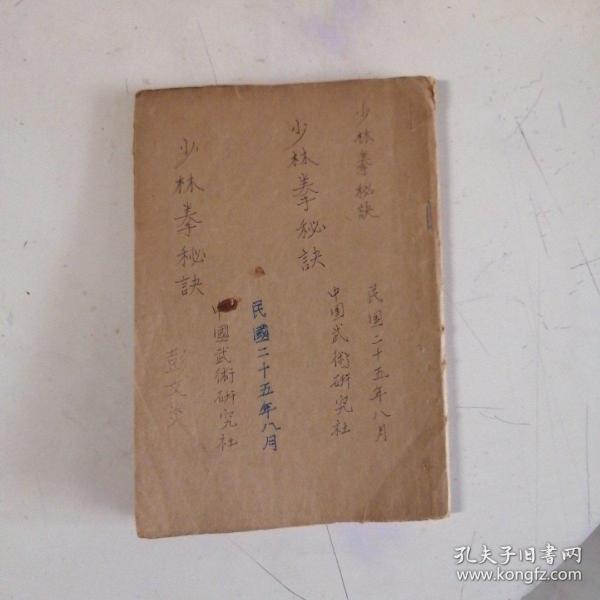 少林拳秘訣
民国二十五年八月
少林拳秘訣
中国武術研究社
民國二十五年八月
少林拳秘訣
中國武術研究社
彭文
孔夫子旧书网
www.kongfz.com